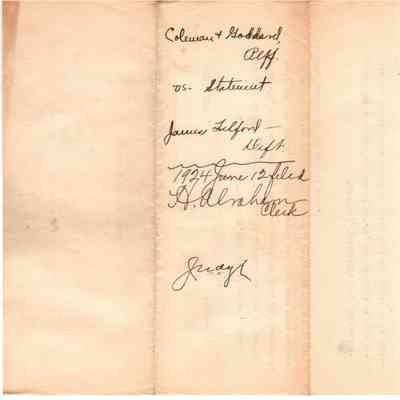 Coleman & Goddard,
Plff.
vs. Statement
James Tilford —
Deft.
1924 June 12 filed
H. Abraham
Clerk